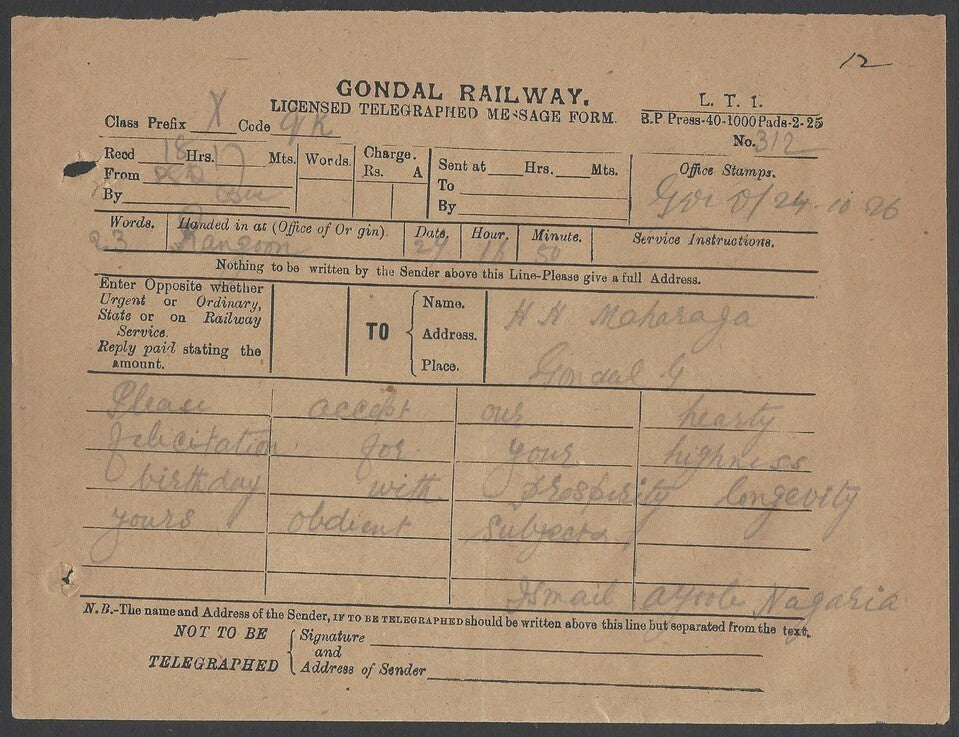 12
GONDAL RAILWAY.
LICENSED TELEGRAPHED MESSAGE FORM.
L. T. 1.
B.P. Press-40-1000 Pads-2-25
Class Prefix X Code
No. 312
Recd 18 Hrs. 17 Mts. Words. Charge. Rs. A Sent at Hrs. Mts. Office Stamps.
From To
By By
24-10-26
Words. Handed in at (Office of Or gin). Date. Hour. Minute. Service Instructions.
23 Rangoon 24 16 50
Nothing to be written by the Sender above this Line-Please give a full Address.
Enter Opposite whether
Urgent or Ordinary,
State or on Railway
Service.
Reply paid stating the
amount.
TO
Name. H H Maharaga
Address.
Place. Gondal G
Please accept our hearty
felicitation for your highness
birthday with prosperity longevity
yours obdient subjects
Ismail ayoob Nagaria
N.B.-The name and Address of the Sender, IF TO BE TELEGRAPHED should be written above this line but separated from the text.
NOT TO BE
TELEGRAPHED
Signature
and
Address of Sender